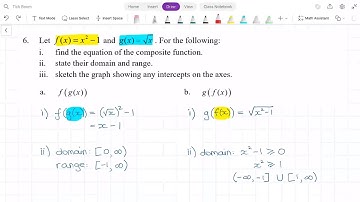 File Insert Draw View Class Notebook
Math Assistant
6. Let f(x) = x² − 1 and g(x) = √x . For the following:
i. find the equation of the composite function.
ii. state their domain and range.
iii. sketch the graph showing any intercepts on the axes.
a. f(g(x)) b. g(f(x))
i) f(g(x)) = (√x)² − 1 i) g(f(x)) = √x²−1
= x − 1
ii) domain: [0, ∞) ii) domain: x² − 1 ⩾ 0
range: [-1, ∞) x² ⩾ 1
(-∞, -1] ∪ [1, ∞)